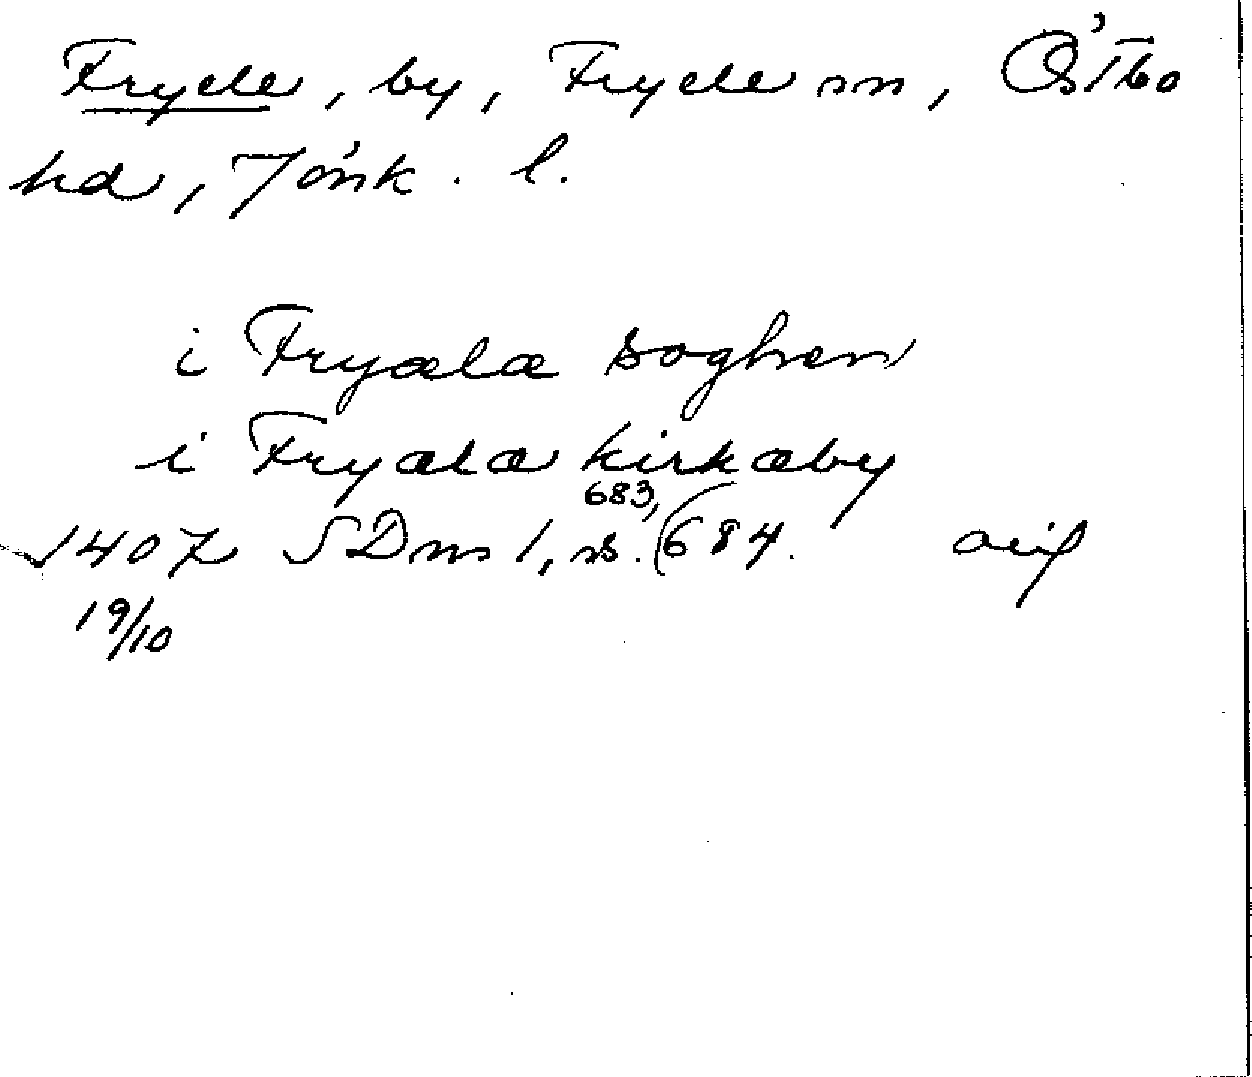 Fryele, by, Fryele sn, Östbo
hd, Jönk. l.
i Fryæla soghen
i Fryæla kirkæby
1407 SDns 1, s. 683, (684. avf
19/10